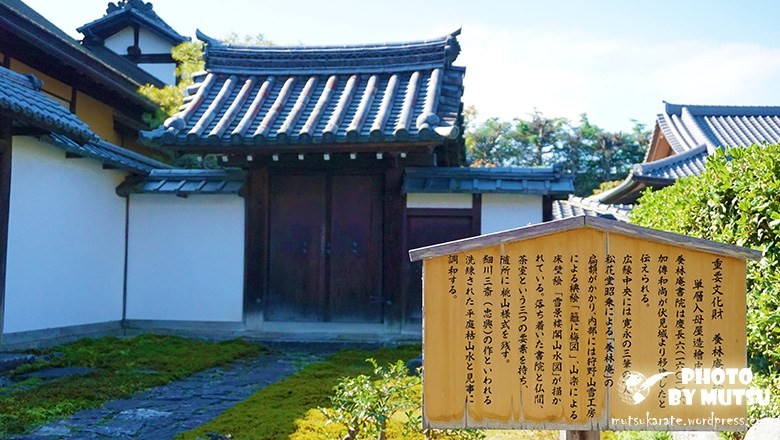 重要文化財 養林庵
単層入母屋造檜
養林庵書院は慶長六(一六
加傳和尚が伏見城より移
したと
伝えられる。
広縁中央には寛永の三筆
松花堂昭乗による『養林庵』の
扁額がかかり、内部には狩野山雪工房
による襖絵「籬に梅図」、山楽による
床壁絵「雪景楼閣山水図」が描か
れている。落ち着いた書院と仏間、
茶室という三つの要素を持ち、
随所に桃山様式を残す。
細川三斎(忠興)の作といわれる
洗練された平庭枯山水と見事に
調和する。
PHOTO
BY MUTSU
mutsukarate.wordpress.c